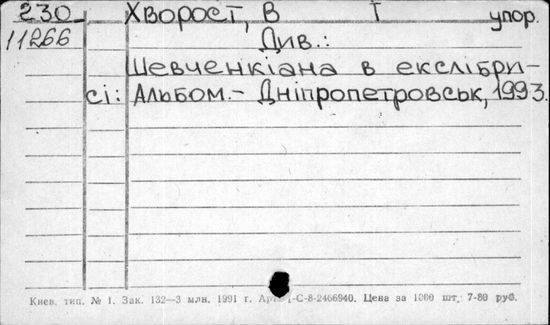 230 Хворост, В І упор.
11266 Див.:
Шевченкіана в екслібри-
сі: Альбом.- Дніпропетровськ, 1993.
Киев. тип. № 1. Зак. 132—3 млн. 1991 г. 1-С-8-2466940. Цена за 1000 шт. 7-80 руб.